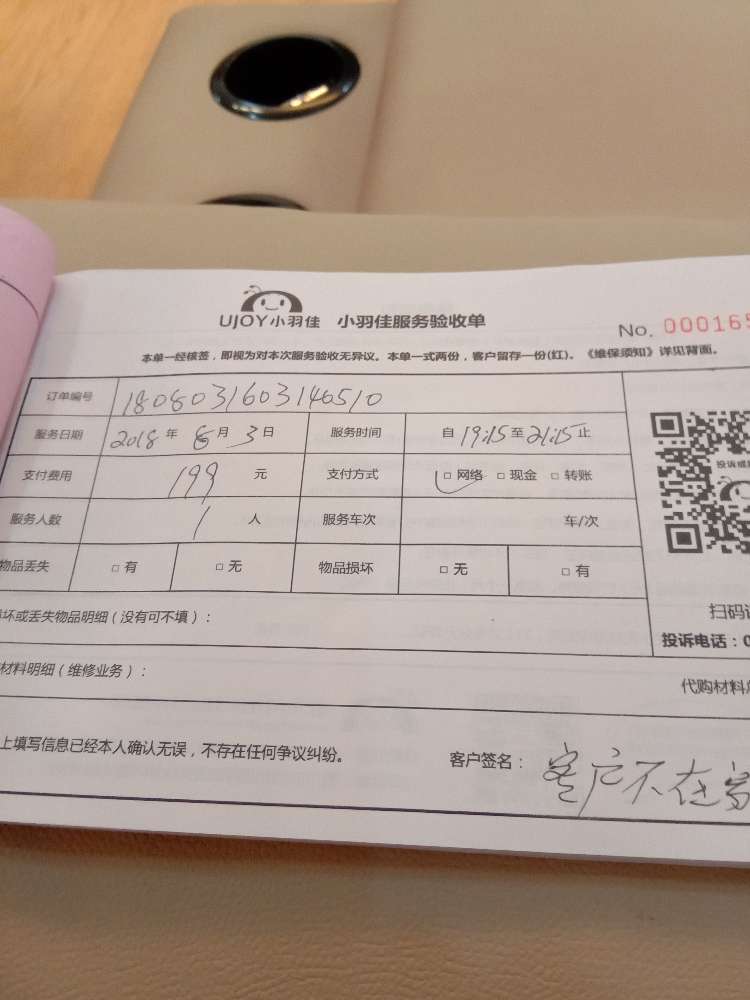 UJOY小羽佳 小羽佳服务验收单
No. 000165
本单一经核签，即视为对本次服务验收无异议。本单一式两份，客户留存一份(红)。《维保须知》详见背面。
订单编号 1808031603146510
服务日期 2018 年 8 月 3 日 服务时间 自 19:15 至 21:15 止
支付费用 199 元 支付方式 □ 网络 □ 现金 □ 转账
服务人数 1 人 服务车次 车/次
物品丢失 □ 有 □ 无 物品损坏 □ 无 □ 有
坏或丢失物品明细（没有可不填）：
材料明细（维修业务）：
投诉或
扫码
投诉电话：0
代购材料
上填写信息已经本人确认无误，不存在任何争议纠纷。
客户签名： 客户不在家